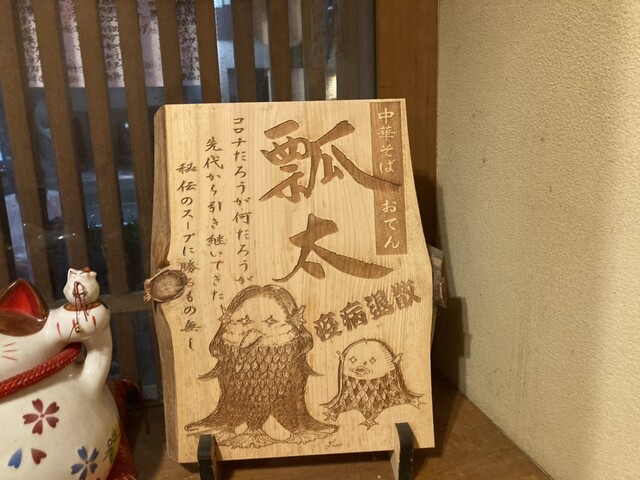 中華そば おでん
瓢太
コロナだろうが何だろうが
先代から引き継いできた
秘伝のスープに勝るもの無し
疫病退散